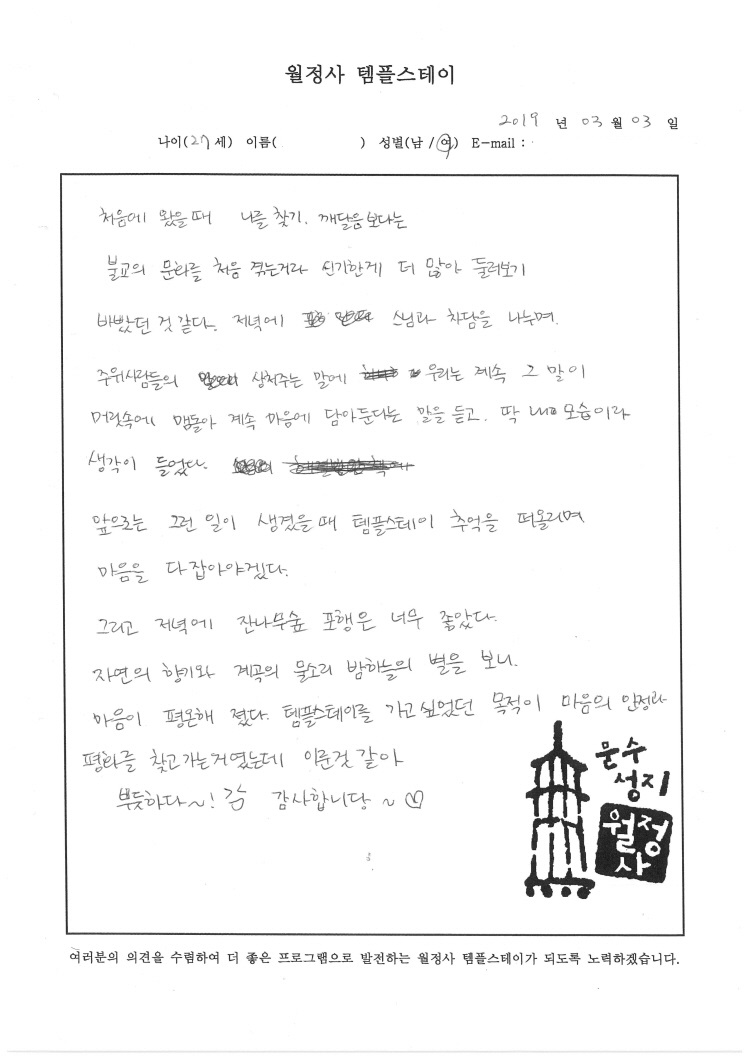 월정사 템플스테이
2019 년 03 월 03 일
나이(27세) 이름( ) 성별(남 / 여) E-mail :
처음에 왔을때 나를 찾기. 깨달음보다는
불교의 문화를 처음 겪는거라 신기한게 더 많아 둘러보기
바빴던 것 같다. 저녁에 스님과 차담을 나누며.
주위사람들의 상처주는 말에 우리는 계속 그 말이
머릿속에 맴돌아 계속 마음에 담아둔다는 말을 듣고. 딱 내 모습이라
생각이 들었다.
앞으로는 그런 일이 생겼을때 템플스테이 추억을 떠올리며
마음을 다잡아야겠다.
그리고 저녁에 잔나무숲 포행은 너무 좋았다.
자연의 향기와 계곡의 물소리 밤하늘의 별을 보니.
마음이 평온해 졌다. 템플스테이를 가고싶었던 목적이 마음의 안정과
평화를 찾고가는거였는데 이룬것 같아
뿌듯하다~! 감사합니당 ~ ♡
문수
성지
월정
사
여러분의 의견을 수렴하여 더 좋은 프로그램으로 발전하는 월정사 템플스테이가 되도록 노력하겠습니다.